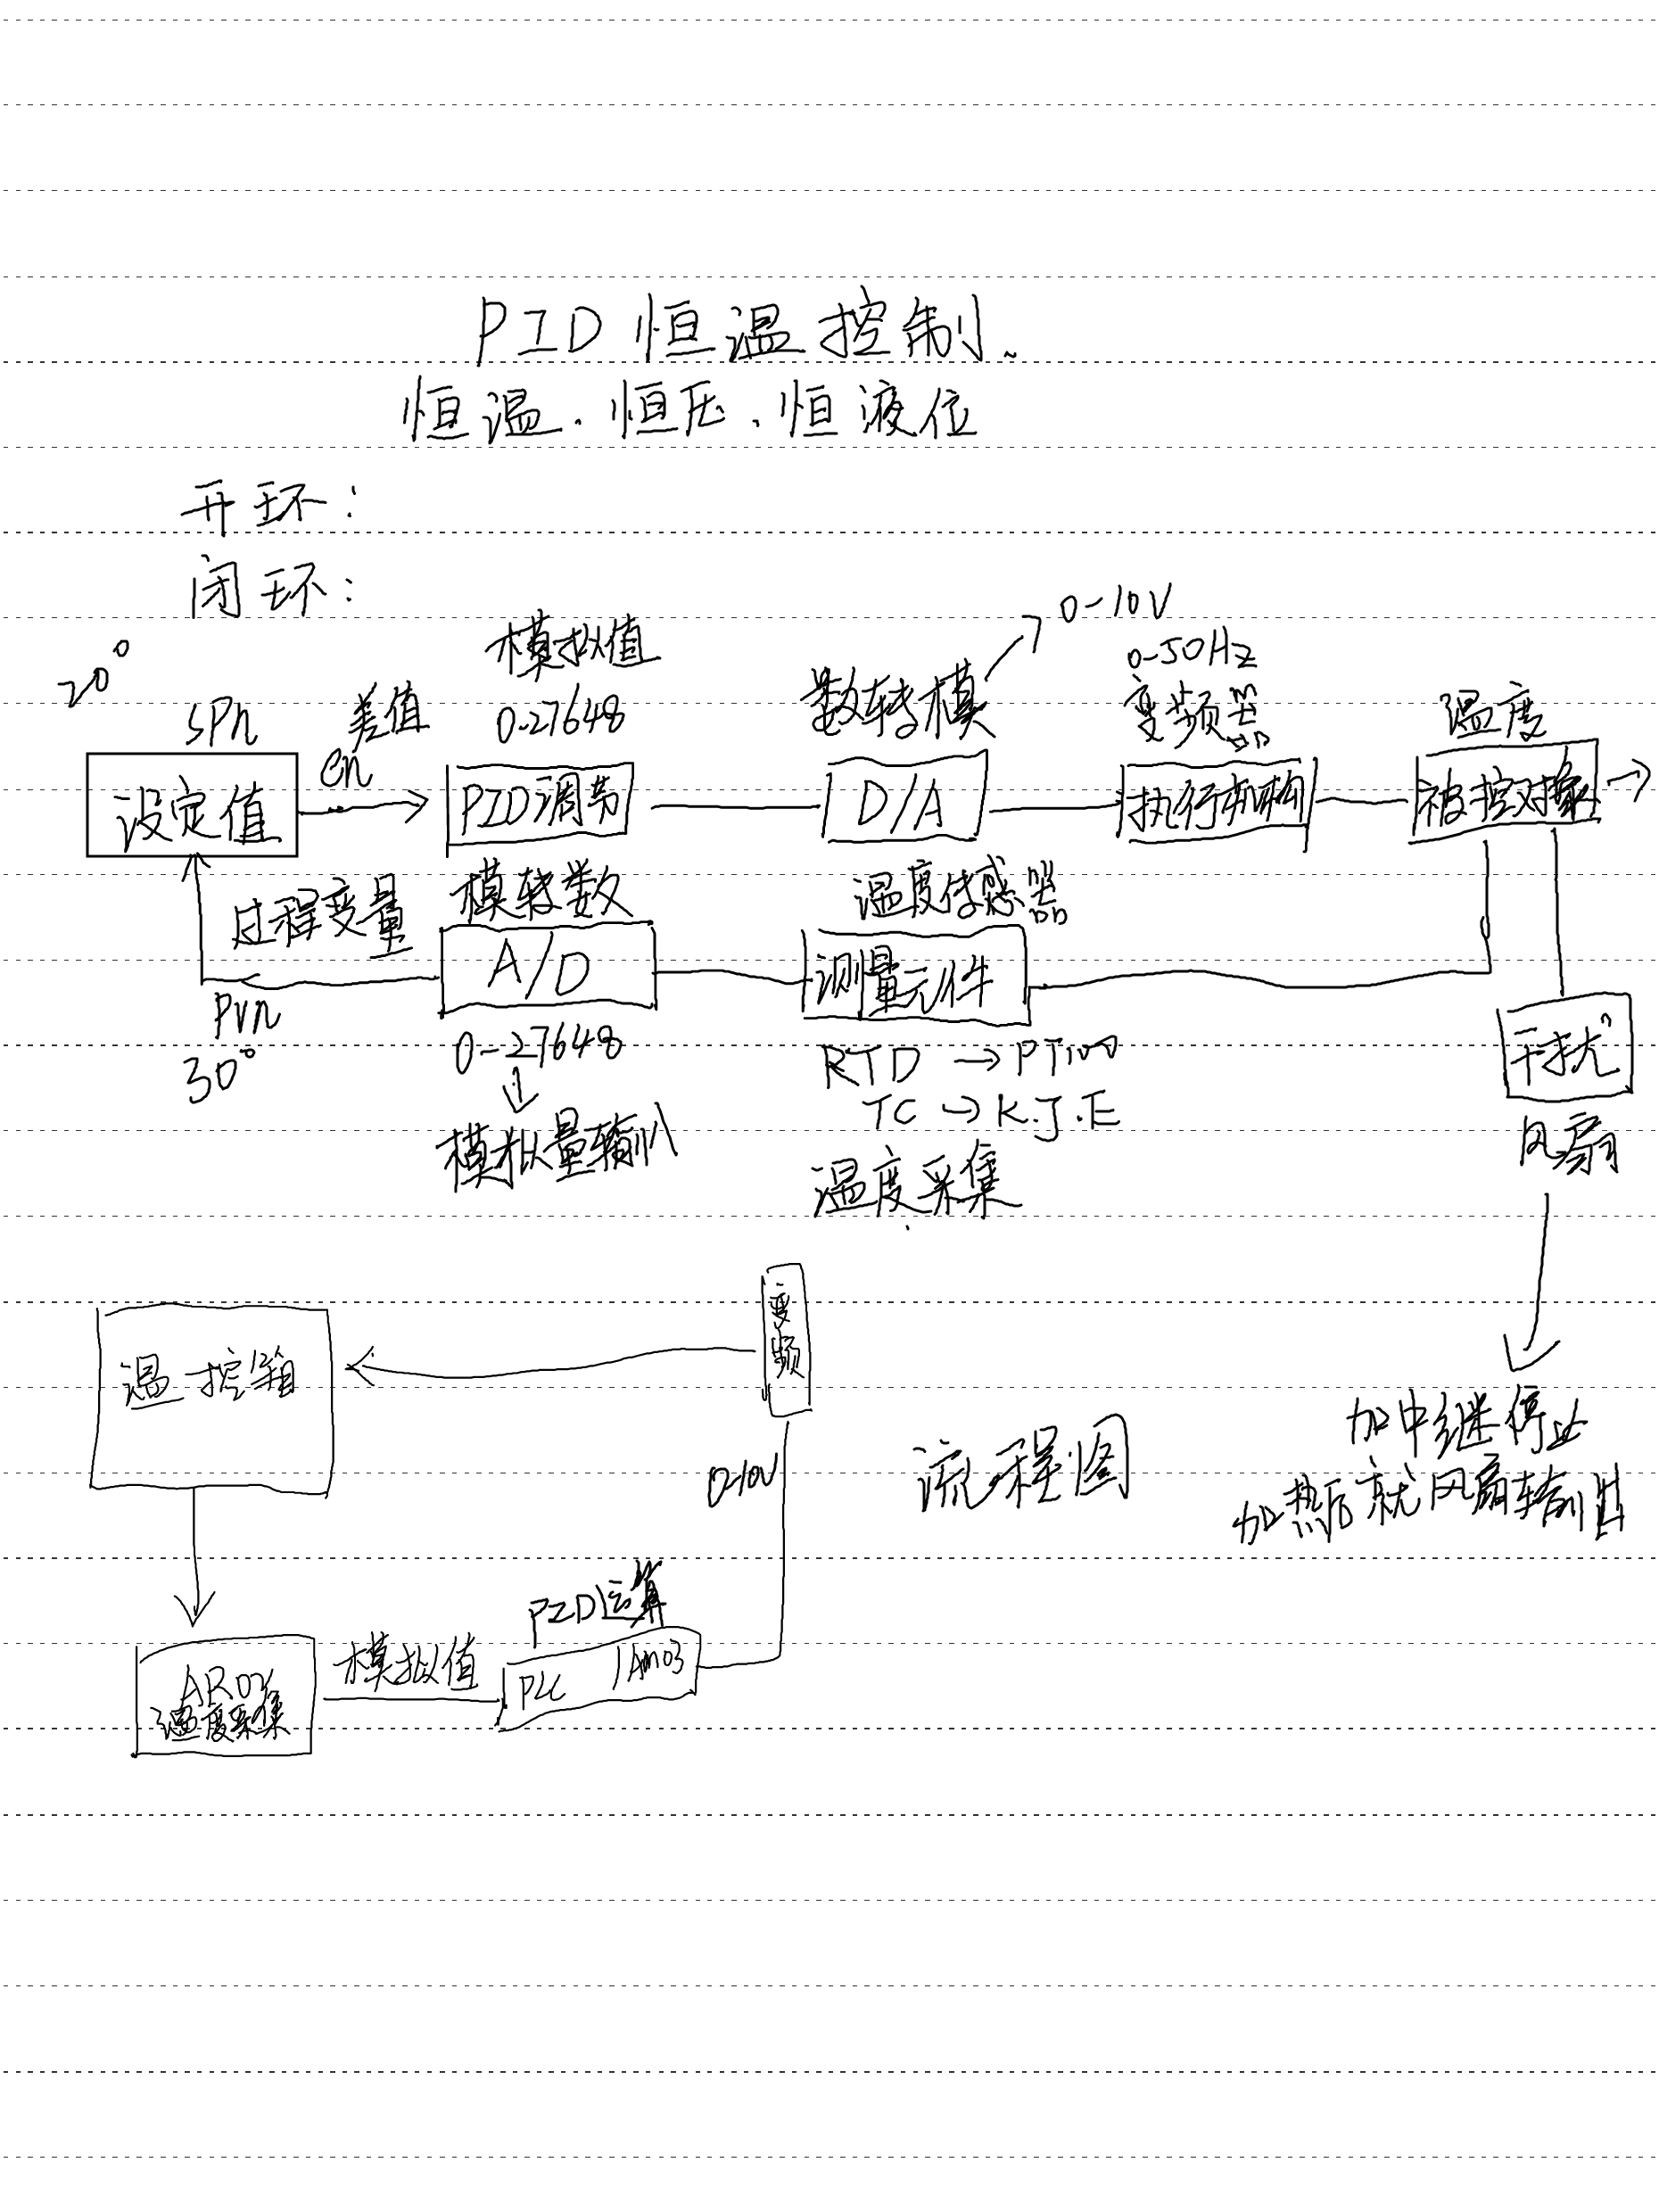 PID恒温控制.
恒温.恒压.恒液位
开环:
闭环:
20°
SPn
设定值
差值
en
模拟值
0-27648
PID调节
数转模
0-10V
D/A
0-50Hz
变频器
执行机构
温度
被控对象
过程变量
PVn
30°
模转数
A/D
0-27648
模拟量输入
温度传感器
测量元件
RTD → PT100
TC → K.J.E
温度采集
干扰
风扇
加中继停止
加热后就风扇输出
变频
温控箱
0-10V
流程图
PID运算
PLC
AM03
模拟值
温度采集